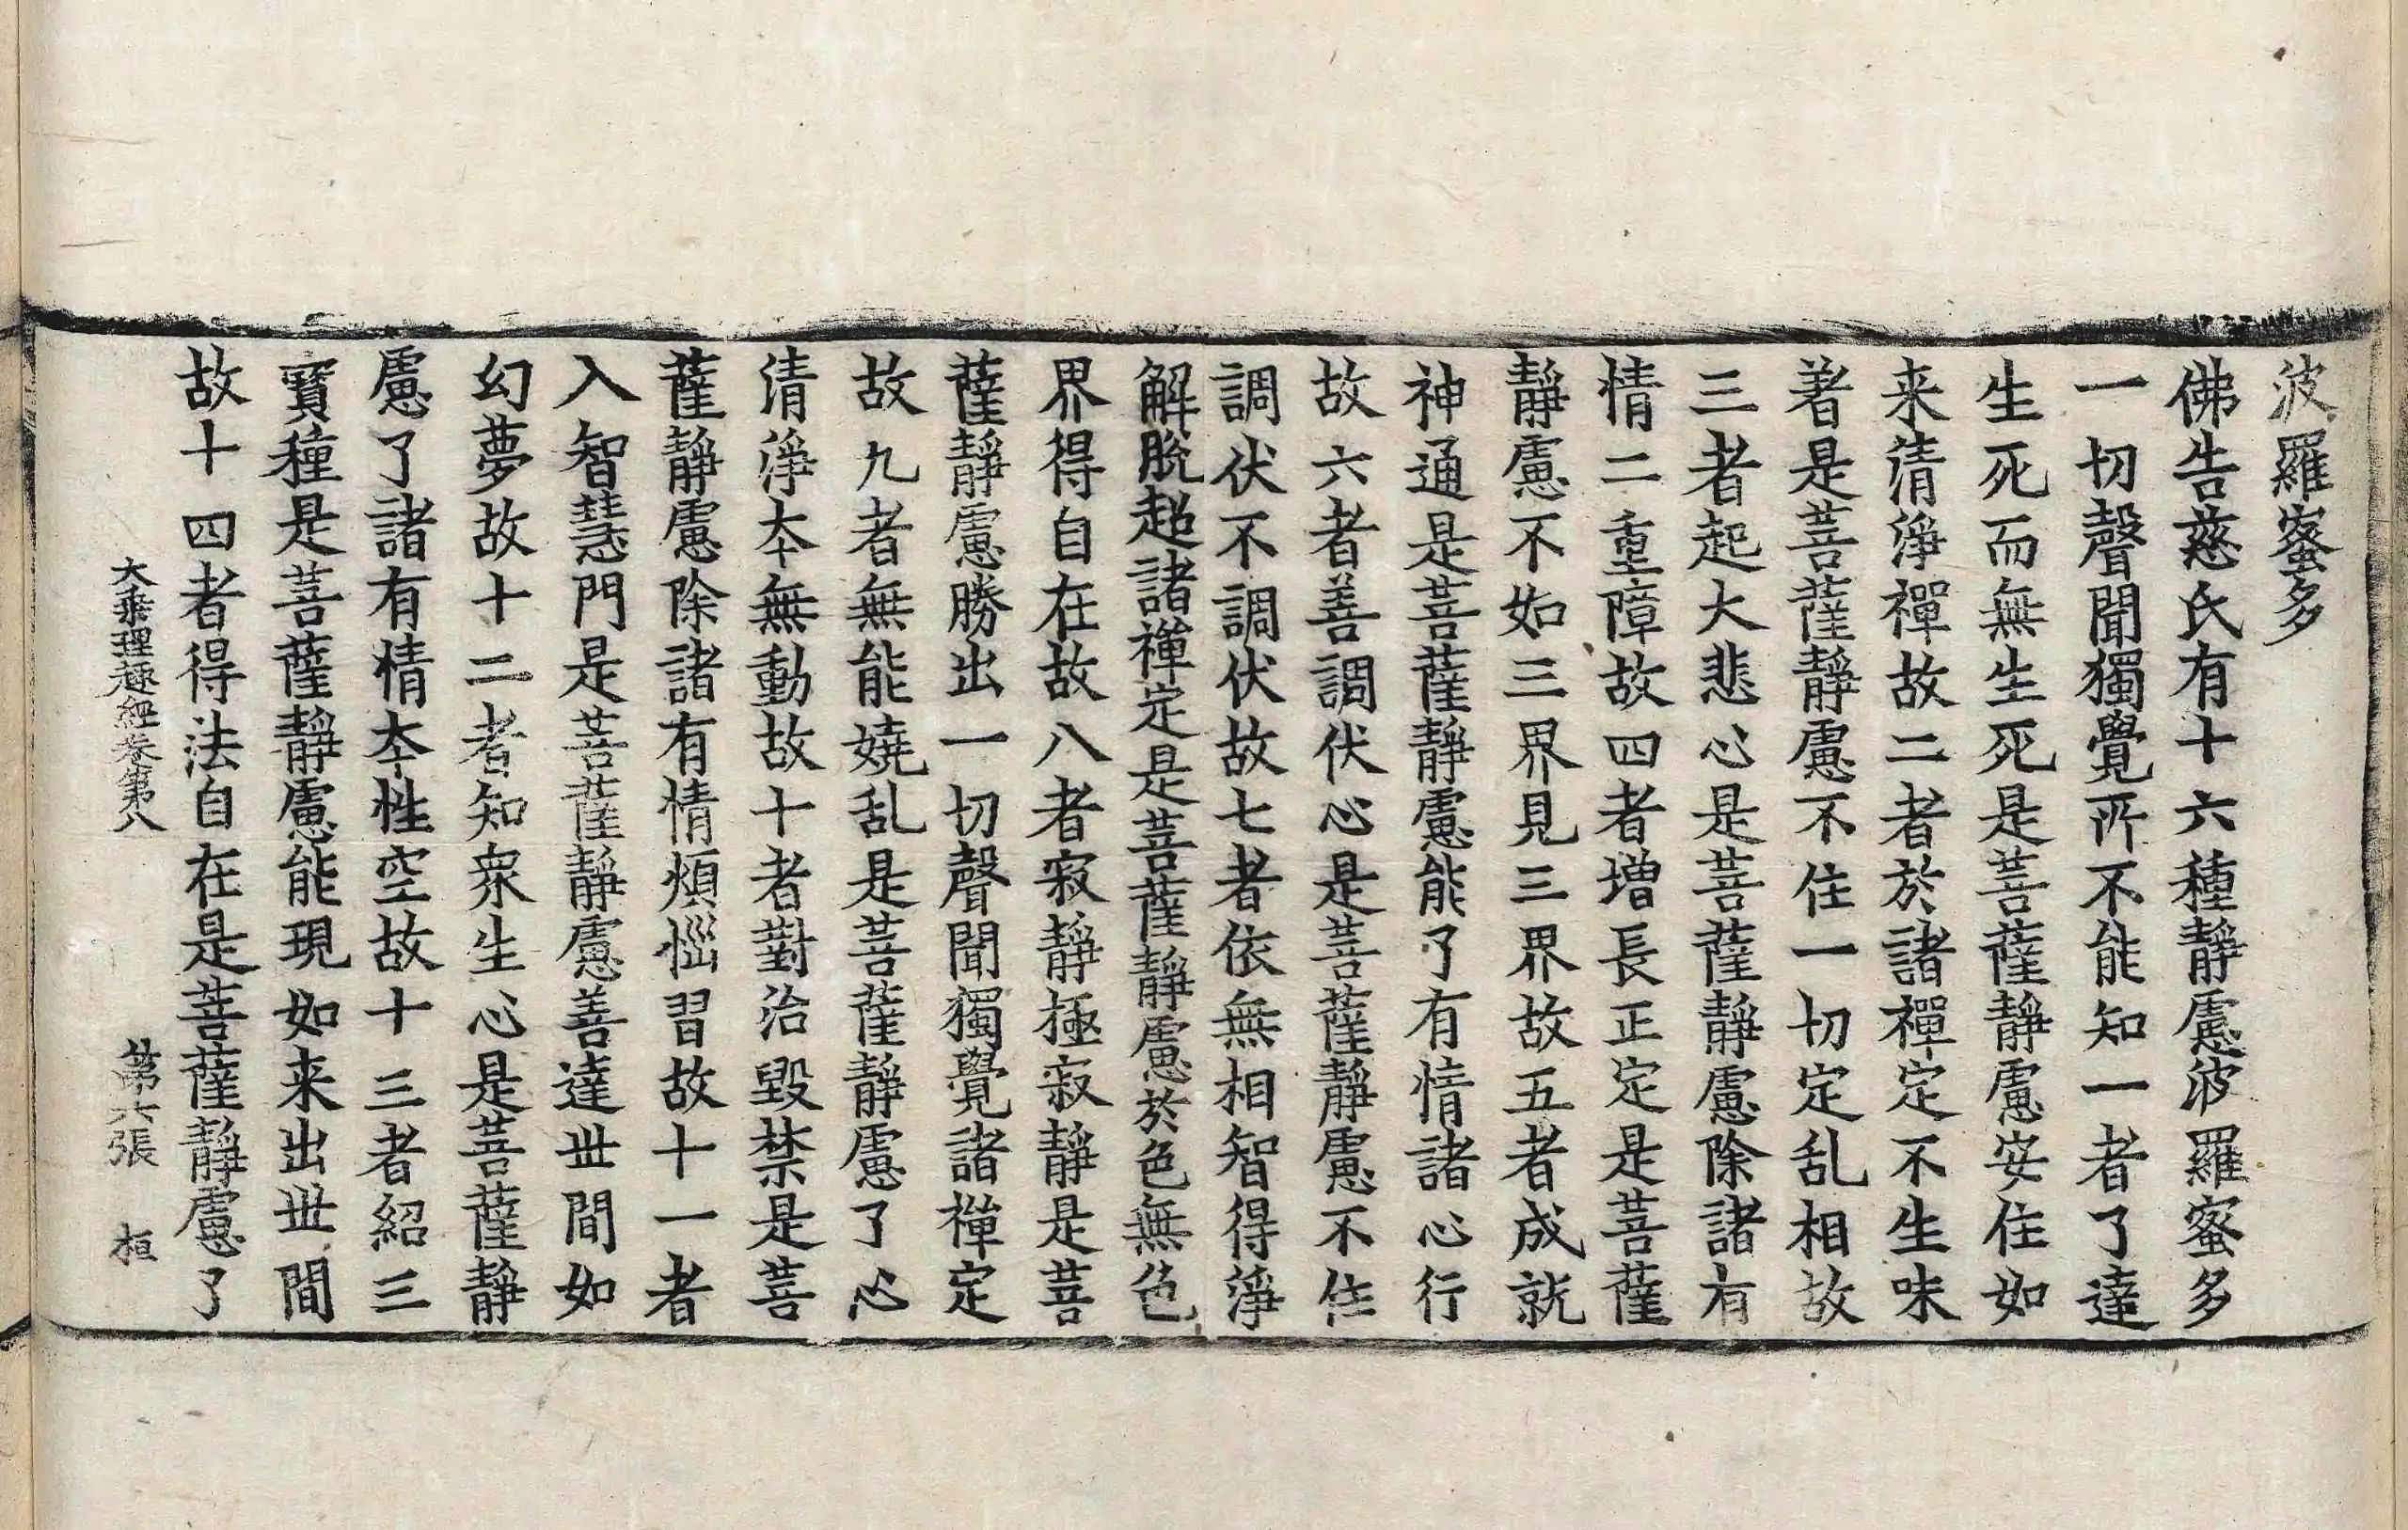 波羅蜜多
佛告慈氏有十六種靜慮波羅蜜多
一切聲聞獨覺所不能知一者了達
生死而無生死是菩薩靜慮安住如
来清淨禪故二者於諸禪定不生味
著是菩薩靜慮不住一切定乱相故
三者起大悲心是菩薩靜慮除諸有
情二重障故四者增長正定是菩薩
靜慮不如三界見三界故五者成就
神通是菩薩靜慮能了有情諸心行
故六者善調伏心是菩薩靜慮不住
調伏不調伏故七者依無相智得淨
解脫超諸禪定是菩薩靜慮於色無色
界得自在故八者寂靜極寂靜是菩
薩靜慮勝出一切聲聞獨覺諸禪定
故九者無能嬈乱是菩薩靜慮了心
清淨夲無動故十者對治毀禁是菩
薩靜慮除諸有情煩惱習故十一者
入智慧門是菩薩靜慮善達丗間如
幻夢故十二者知衆生心是菩薩靜
慮了諸有情夲性空故十三者紹三
寶種是菩薩靜慮能現如来出丗間
故十四者得法自在是菩薩靜慮了
大乗理趣經卷第八 第六張 桓